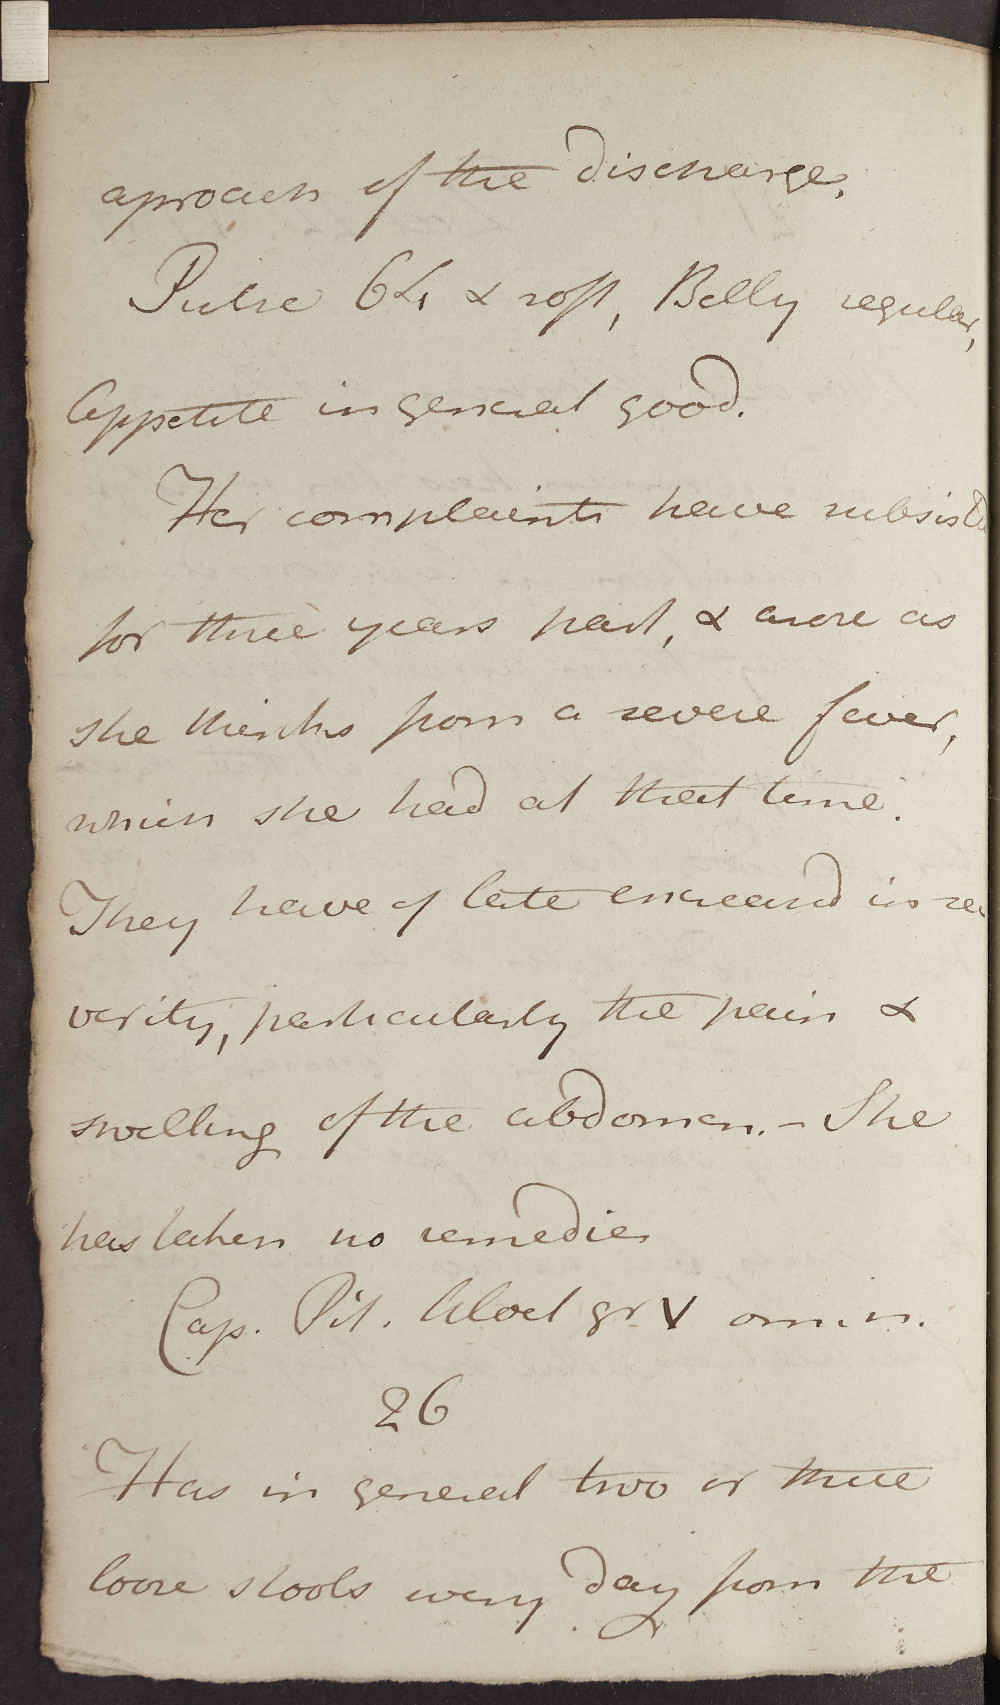 aproach of the discharge.
Pulse 64 & soft, Belly regular,
Appetite in general good.
Her complaints have subsisted
for three years past, & arose as
she thinks from a severe fever,
which she had at that time.
They have of late encreased in se
verity, particularly the pain &
swelling of the abdomen. - She
has taken no remedies
Cap. Pil. Aloet gr V om. n.
26
Has in general two or three
loose stools every day from the